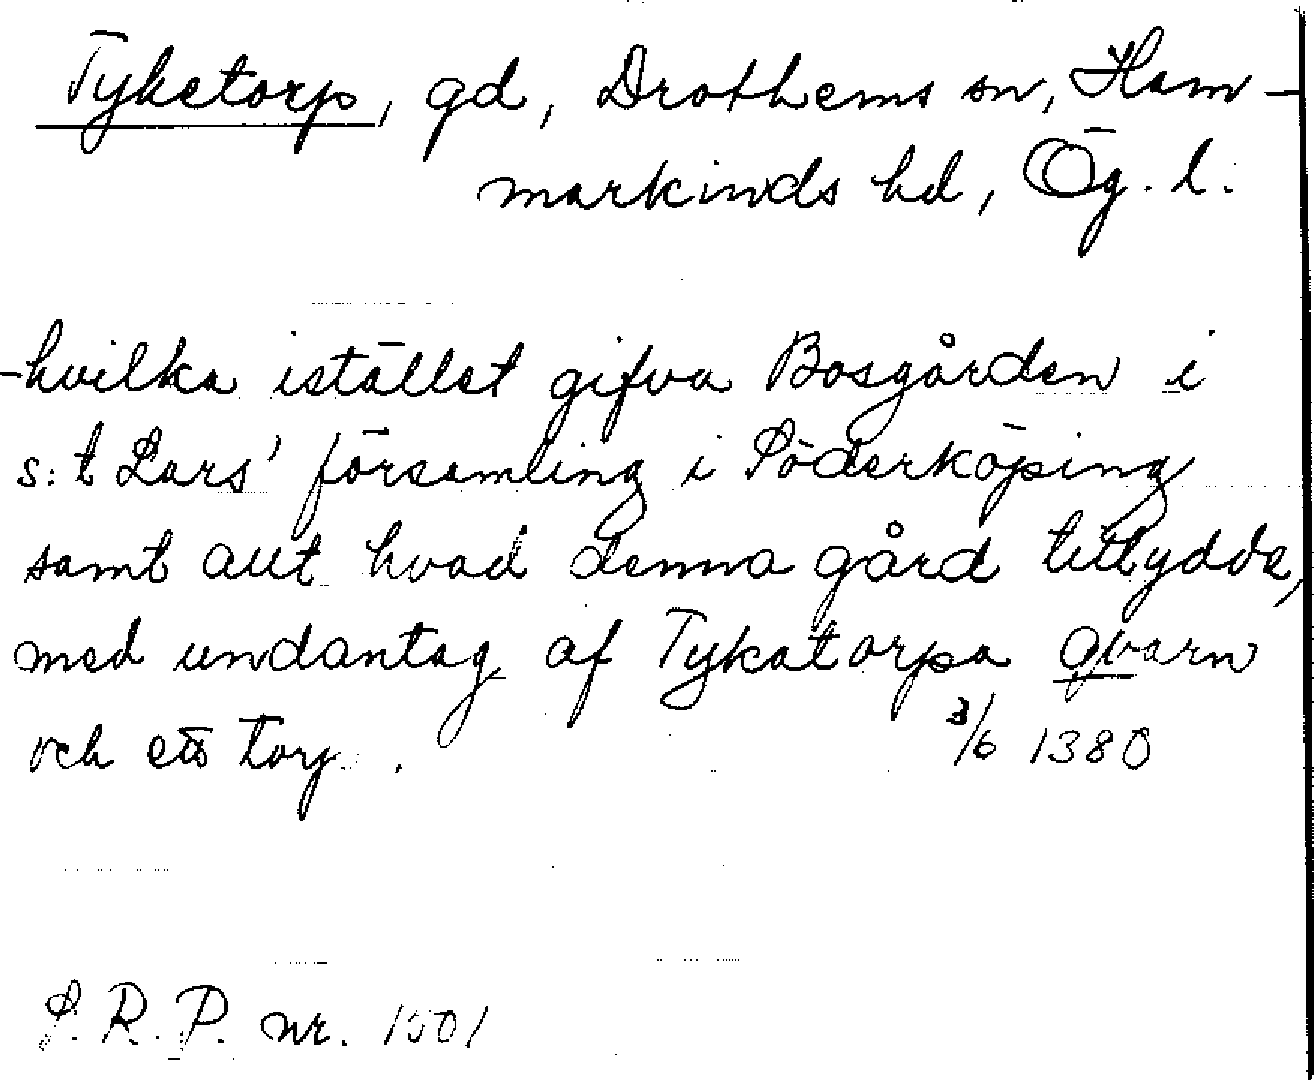 Tyketorp, gd, Drothems sn, Ham-
markinds hd, Ög. l.
-hvilka istället gifva Bosgården i
s:t Lars' församling i Söderköping
samt allt hvad denna gård tillydde,
med undantag af Tykatorpa qvarn
och ett torg.
3/6 1380
S. R. P. nr. 1501